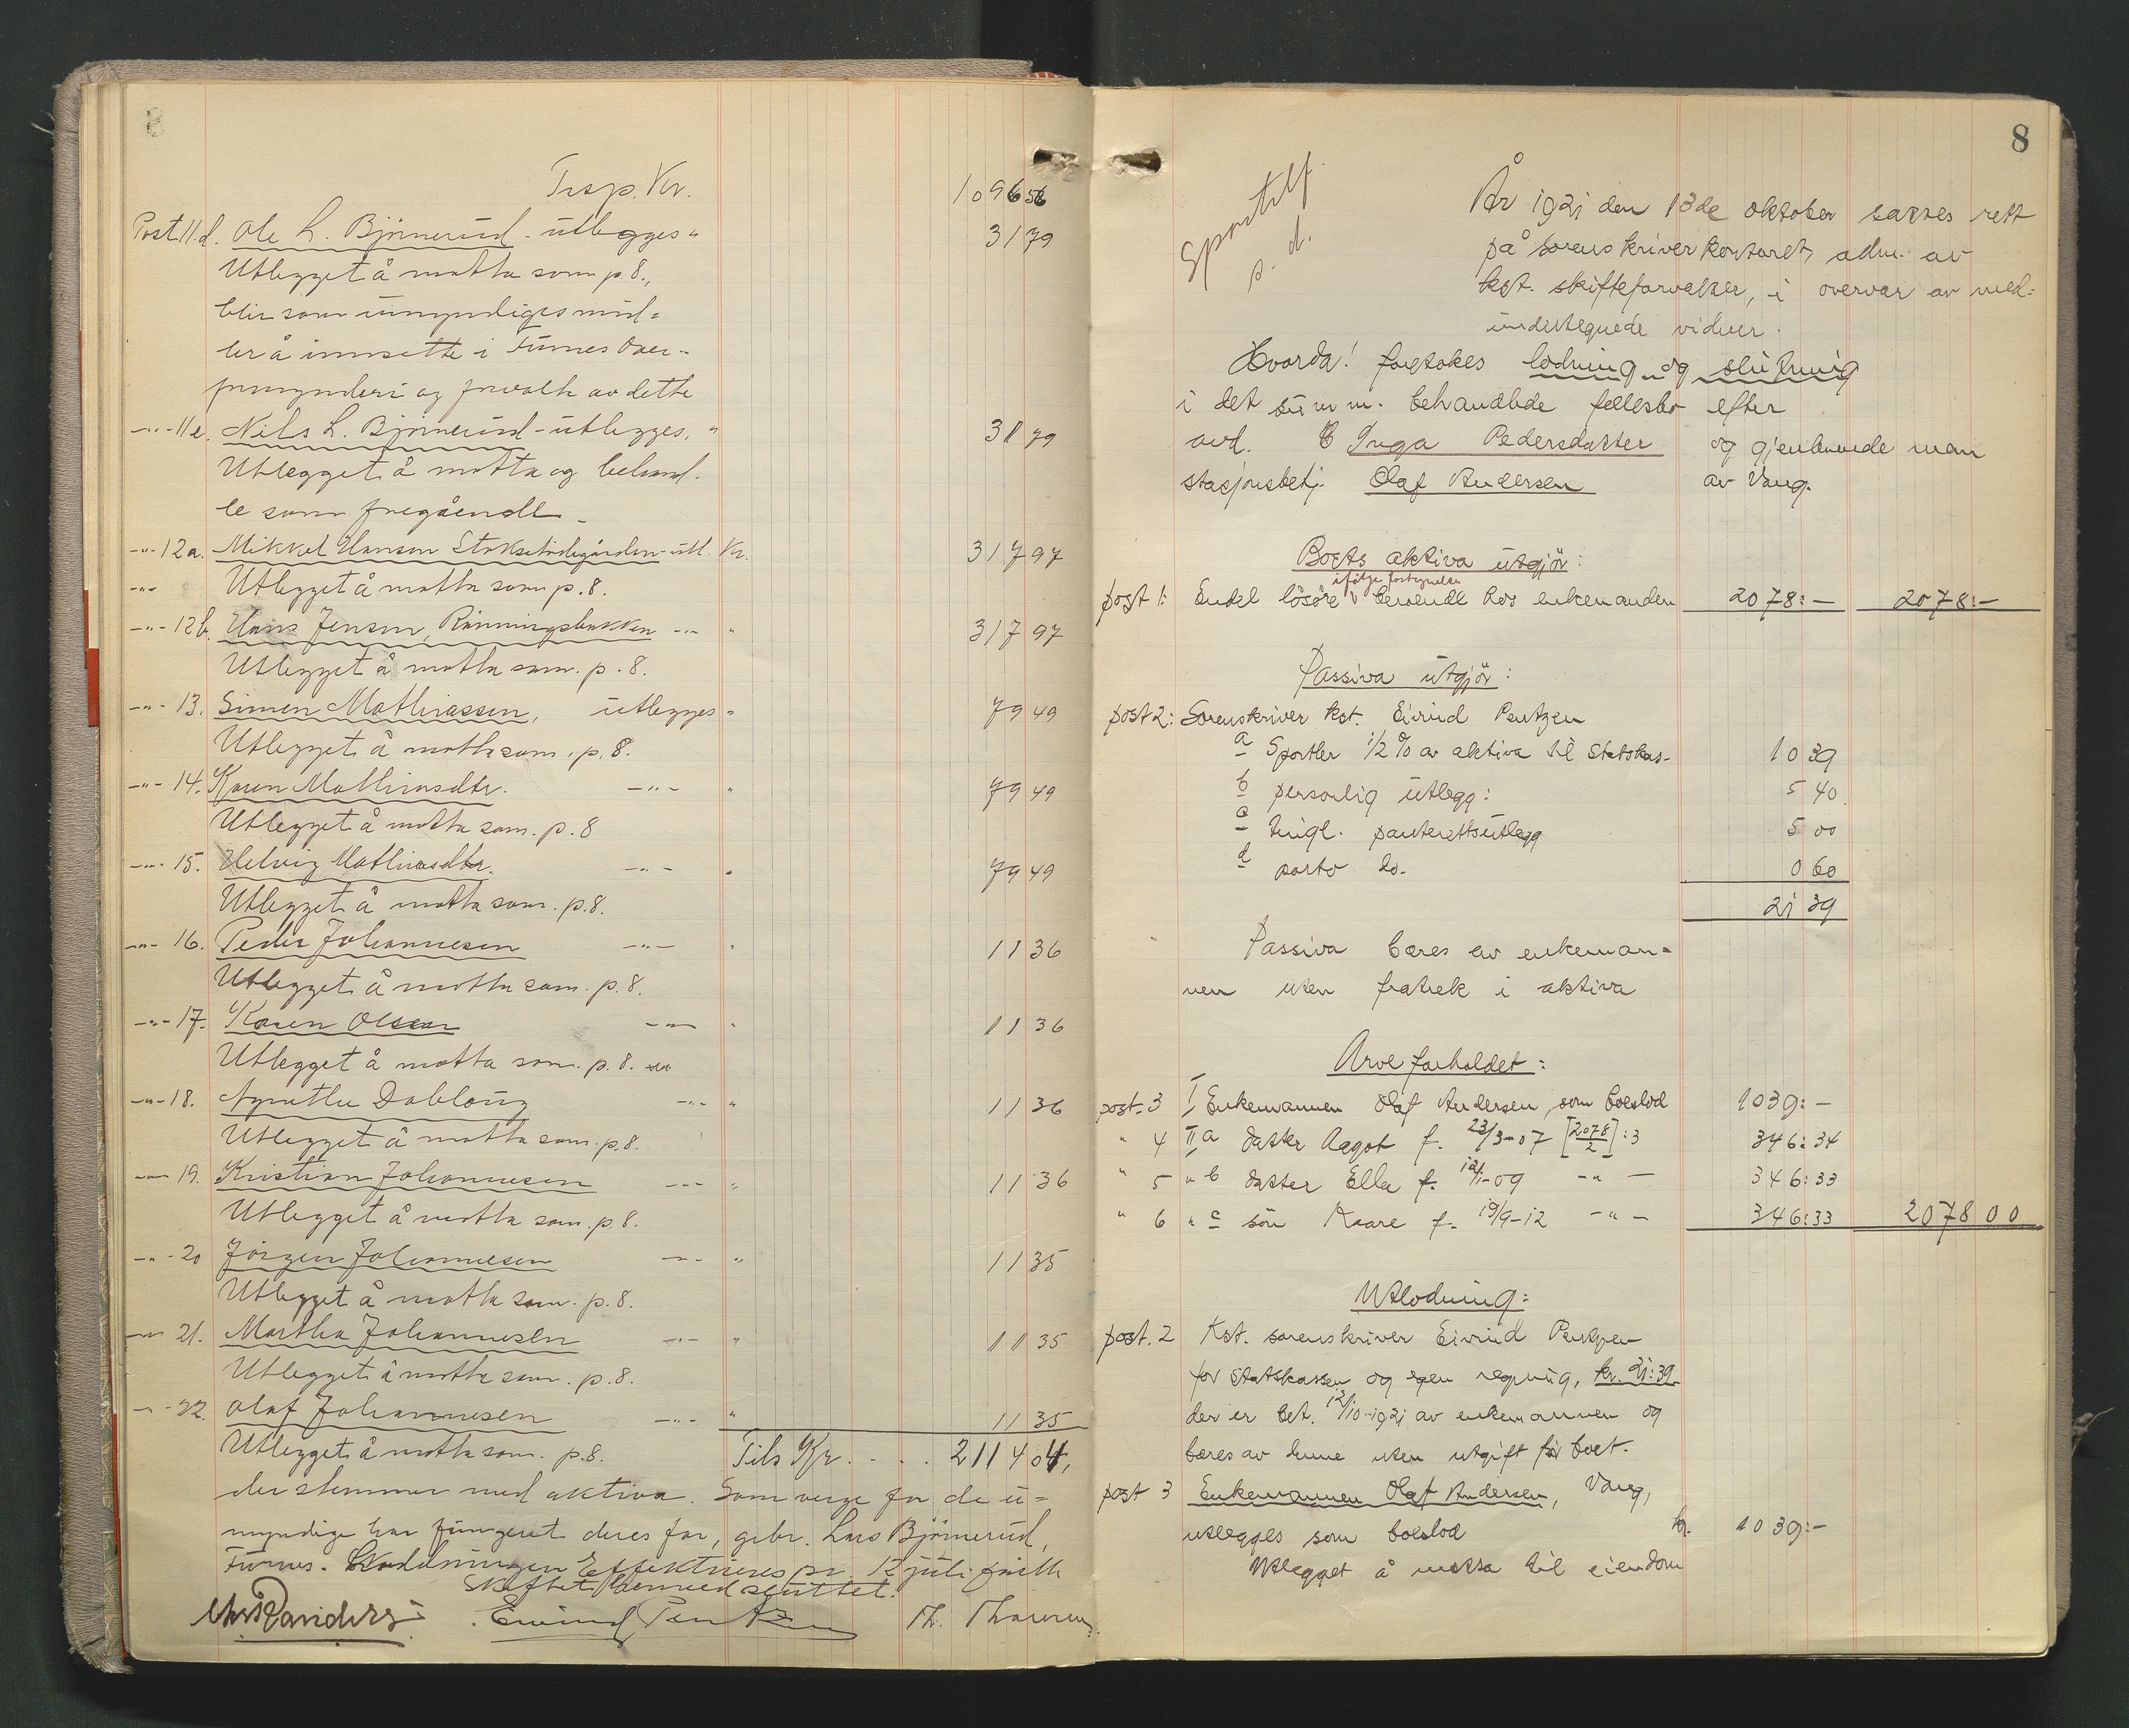 Trsp. Kr. 1096 56
Post 11.d. Ole L. Björnerud - utlegges " 31 79
Utlegget å motta som p. 8.,
blir som umyndiges mid-
ler å innsette i Furnes Over-
formynderi og forvalte av dette
-"- 11e. Nils L. Björnerud - utlegges, " 31 79
Utlegget å motta og behand-
le som foregående
-"- 12a. Mikkel Hansen Stoksetödegården - utl. Kr. 317 97
-"- Utlegget å motta som p. 8.
-"- 12b. Hans Jensen, Rönningsbakken -"- " 317 97
Utlegget å motta som. p. 8.
-"- 13. Simen Mathiassen, utlegges " 79 49
Utlegget å motta som. p. 8.
-"- 14. Karen Mathiasdtr. -"- " 79 49
Utlegget å motta som. p. 8
-"- 15. Helvig Mathiasdtr. -"- " 79 49
Utlegget å motta som. p. 8.
-"- 16. Peder Johannesen -"- " 11 36
Utlegget å motta som. p. 8.
-"- 17. Karen Olsen -"- " 11 36
Utlegget å motta som. p. 8.
-"- 18. Agnethe Dobloug -"- " 11 36
Utlegget å motta som. p. 8.
-"- 19. Kristian Johannesen -"- " 11 36
Utlegget å motta som. p. 8.
-"- 20 Jörgen Johannesen -"- " 11 35
Utlegget å motta som. p. 8.
-"- 21. Martha Johannesen -"- " 11 35
Utlegget å motta som. p. 8.
-"- 22. Olaf Johannesen -"- " 11 35
Utlegget å motta som. p. 8. Tils Kr. . . . . 2114 04,
der stemmer med aktiva. Som verge for de u-
myndige har fungeret deres far, gbr. Lars Björnerud,
Furnes. Utlodningen Effektueres pr. 12 juli
Skiftet hermed sluttet.
Eivind Pentzen Th.
8
Sportelf.
s. d.
År 1921 den 13de oktober sattes rett
på sorenskriverkontoret, adm. av
kst. skifteforvalter, i overvær av med-
undertegnede vidner.
Hvorda! foretokes lodning og slutning
i det summ. behandlede fellesbo efter
avd. Inga Pedersdatter og gjenlevende man
stasjonsbetj. Olaf Andersen av Vang.
Boets aktiva utgjör:
ifölge fortegnelse
post 1: Endel lösöre beroende hos enkemanden 2078:- 2078:-
Passiva utgjör:
post 2: Sorenskriver kst. Eivind Pentzen
a Sportler 1/2 % av aktiva til Statskas- 10 39
b personlig utlegg: 5 40
c tingl. panterettsutlegg 5 00
d porto do. 0 60
21 39
Passiva bæres av enkeman-
nen uten fratrek i aktiva
Arveforholdet:
post. 3 I Enkemannen Olaf Andersen, som boeslod 1039:-
" 4 II a datter Aagot f. 23/3-07 [2078/2]:3 346:34
" 5 " b datter Ella f. 12/1-09 -"- 346:33
" 6 " c sön Kaare f. 19/9-12 -"- 346:33 2078 00
Utlodning:
post. 2 Kst. sorenskriver Eivind Pentzen
for Statskassen og egen regning, kr. 21:39
der er bet. 12/10-1921 av enkemannen og
bæres av denne uten utgift for boet.
post 3 Enkemannen Olaf Andersen, Vang,
utlegges som boeslod kr. 1039:-
Utlegget å motta til eiendom